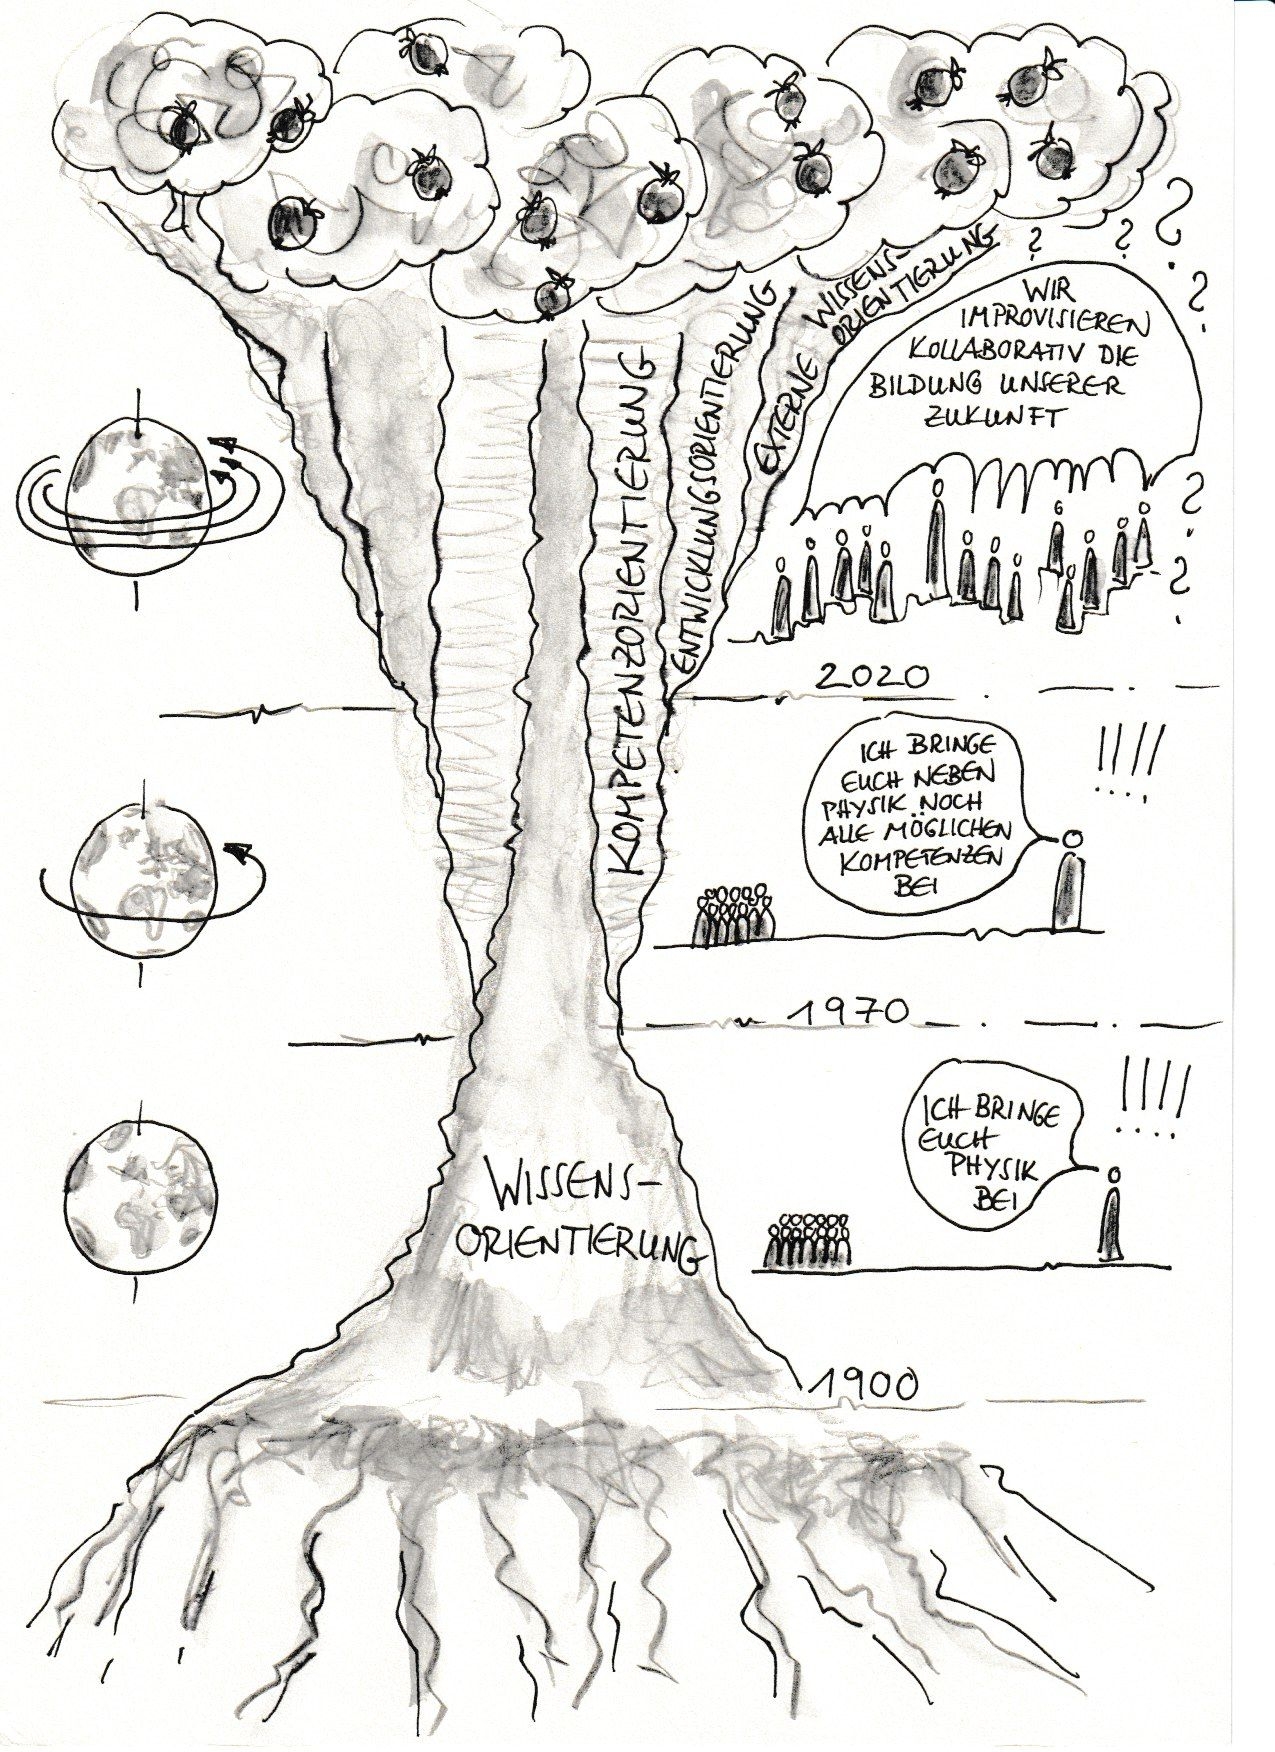 EXTERNE WISSENS-
ORIENTIERUNG
ENTWICKLUNGSORIENTIERUNG
KOMPETENZORIENTIERUNG
? ? ?
?
WIR
IMPROVISIEREN
KOLLABORATIV DIE
BILDUNG UNSERER
ZUKUNFT
?
?
2020
ICH BRINGE
EUCH NEBEN
PHYSIK NOCH
ALLE MÖGLICHEN
KOMPETENZEN
BEI
!!!!
1970
ICH BRINGE
EUCH
PHYSIK
BEI
!!!!
WISSENS-
ORIENTIERUNG
1900